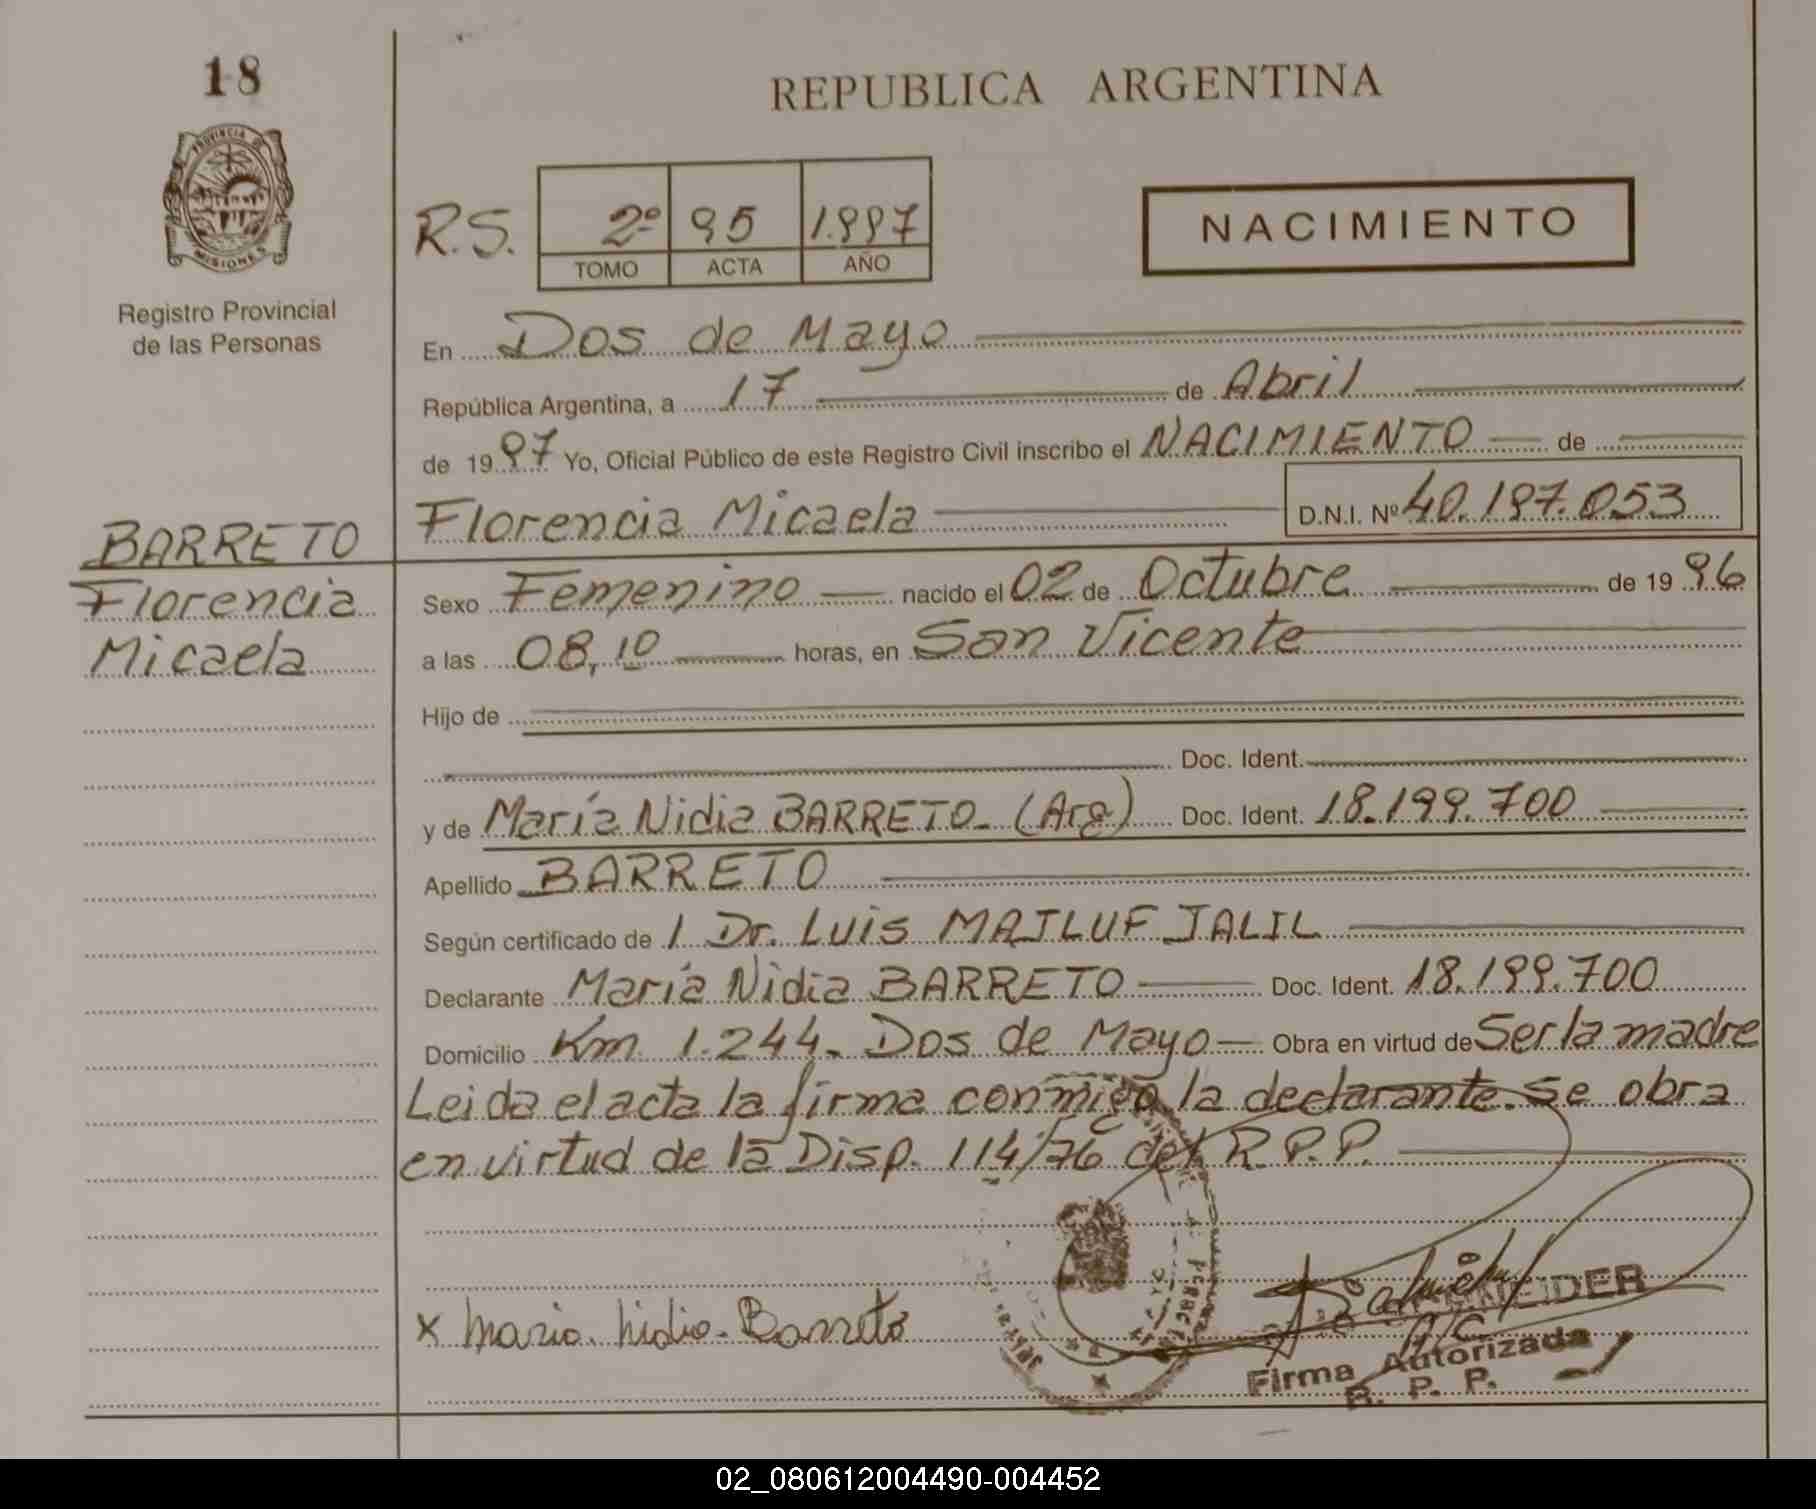 18
REPUBLICA ARGENTINA
PROVINCIA DE
MISIONES
Registro Provincial
de las Personas
R.S. 2º 95 1.997
TOMO ACTA AÑO
NACIMIENTO
En Dos de Mayo
República Argentina, a 17 de Abril
de 1997 Yo, Oficial Público de este Registro Civil inscribo el NACIMIENTO de
Florencia Micaela D.N.I. Nº 40.197.053
BARRETO
Florencia
Micaela
Sexo Femenino nacido el 02 de Octubre de 1996
a las 08,10 horas, en San Vicente
Hijo de
Doc. Ident.
y de María Nidia BARRETO.- (Arg) Doc. Ident. 18.199.700
Apellido BARRETO
Según certificado de l Dr. Luis MAJLUF JALIL
Declarante María Nidia BARRETO Doc. Ident. 18.199.700
Domicilio Km 1.244.- Dos de Mayo Obra en virtud de Ser la madre
Leida el acta la firma conmigo la declarante. Se obra
en virtud de la Disp. 114/76 del R.P.P.
x Maria. Nidia. Barreto
Firma Autorizada
R. P. P.
02_080612004490-004452